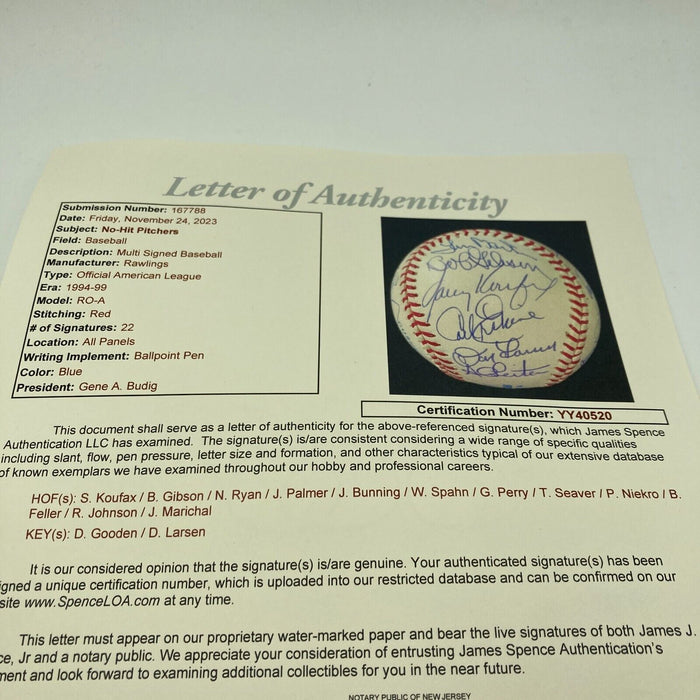 Letter of Authenticity
Submission Number: 167788
Date: Friday, November 24, 2023
Subject: No-Hit Pitchers
Field: Baseball
Description: Multi Signed Baseball
Manufacturer: Rawlings
Type: Official American League
Era: 1994-99
Model: RO-A
Stitching: Red
# of Signatures: 22
Location: All Panels
Writing Implement: Ballpoint Pen
Color: Blue
President: Gene A. Budig
Bob Gibson
Don Larsen
Certification Number: YY40520
This document shall serve as a letter of authenticity for the above-referenced signature(s), which James Spence
Authentication LLC has examined. The signature(s) is/are consistent considering a wide range of specific qualities
including slant, flow, pen pressure, letter size and formation, and other characteristics typical of our extensive database
of known exemplars we have examined throughout our hobby and professional careers.
HOF(s): S. Koufax / B. Gibson / N. Ryan / J. Palmer / J. Bunning / W. Spahn / G. Perry / T. Seaver / P. Niekro / B.
Feller / R. Johnson / J. Marichal
KEY(s): D. Gooden / D. Larsen
It is our considered opinion that the signature(s) is/are genuine. Your authenticated signature(s) has been
igned a unique certification number, which is uploaded into our restricted database and can be confirmed on our
site www.SpenceLOA.com at any time.
This letter must appear on our proprietary water-marked paper and bear the live signatures of both James J.
ce, Jr and a notary public. We appreciate your consideration of entrusting James Spence Authentication's
ment and look forward to examining additional collectibles for you in the near future.
NOTARY PUBLIC OF NEW JERSEY